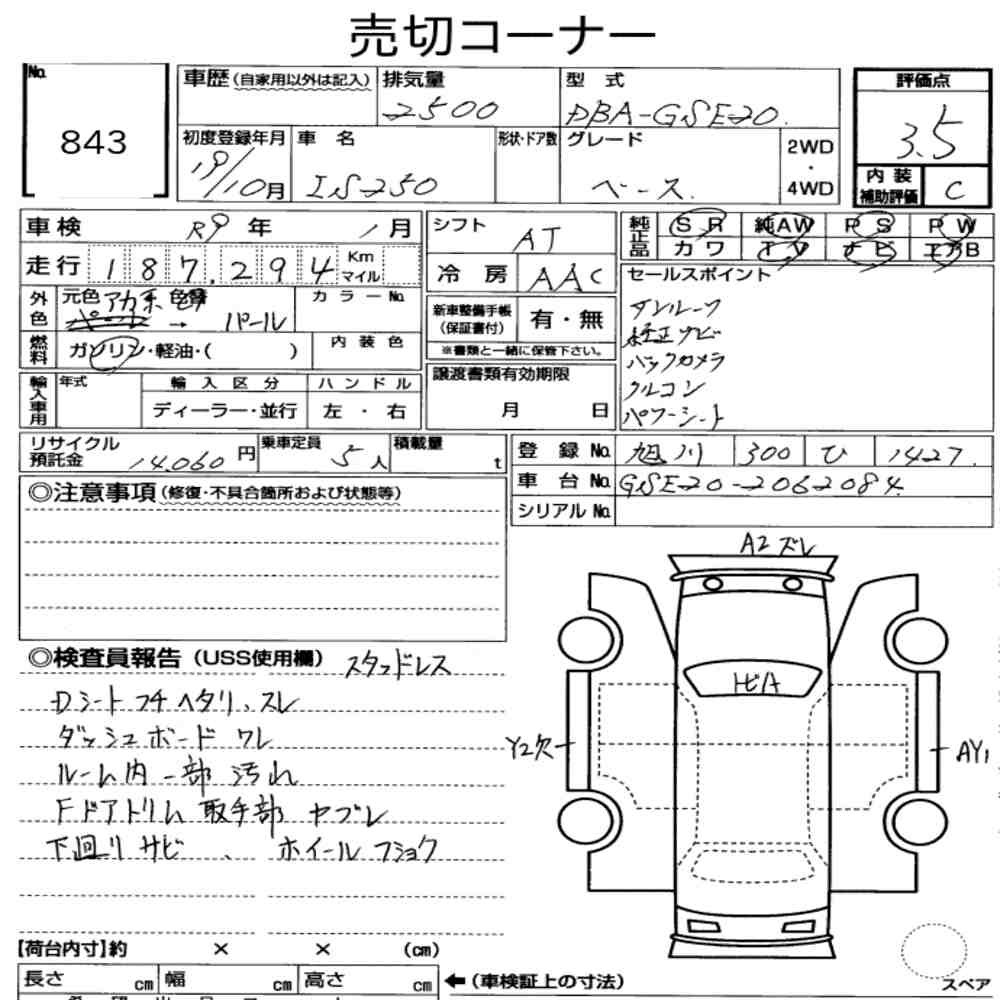 売切コーナー
No. 843
車歴(自家用以外は記入) 排気量 2500 型式 DBA-GSE20
初度登録年月 19/10月 車名 IS250 形状・ドア数 グレード ベース 2WD・4WD
評価点 3.5
内装補助評価 C
車検 R9年 1月
走行 187,294 Km マイル
外色 元色 アカ系 パール → 色替 パール カラーNo.
燃料 ガソリン・軽油・( ) 内装色
輸入車用 年式 輸入区分 ディーラー・並行 ハンドル 左・右
シフト AT
冷房 AAC
新車整備手帳(保証書付) 有・無
※書類と一緒に保管下さい。
譲渡書類有効期限 月 日
純正品 SR 純AW PS PW
カワ TV ナビ エアB
セールスポイント
サンルーフ
純正ナビ
バックカメラ
クルコン
パワーシート
リサイクル預託金 14,060円 乗車定員 5人 積載量 t
登録No. 旭川 300 ひ 1427
車台No. GSE20-2062084
シリアルNo.
◎注意事項(修復・不具合箇所および状態等)
◎検査員報告(USS使用欄) スタッドレス
Dシート フチヘタリ、スレ
ダッシュボード ワレ
ルーム内一部汚れ
Fドアトリム取手部 ヤブレ
下回りサビ、ホイールフショク
A2 ズレ
トビA
Y2欠
AY1
【荷台内寸】約 × × (cm)
長さ cm 幅 cm 高さ cm ←(車検証上の寸法)
スペア